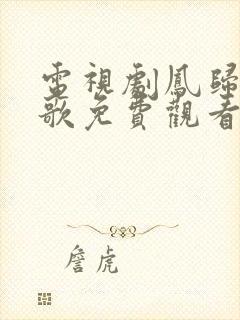 電視劇鳳歸
歌免費觀看
詹虎